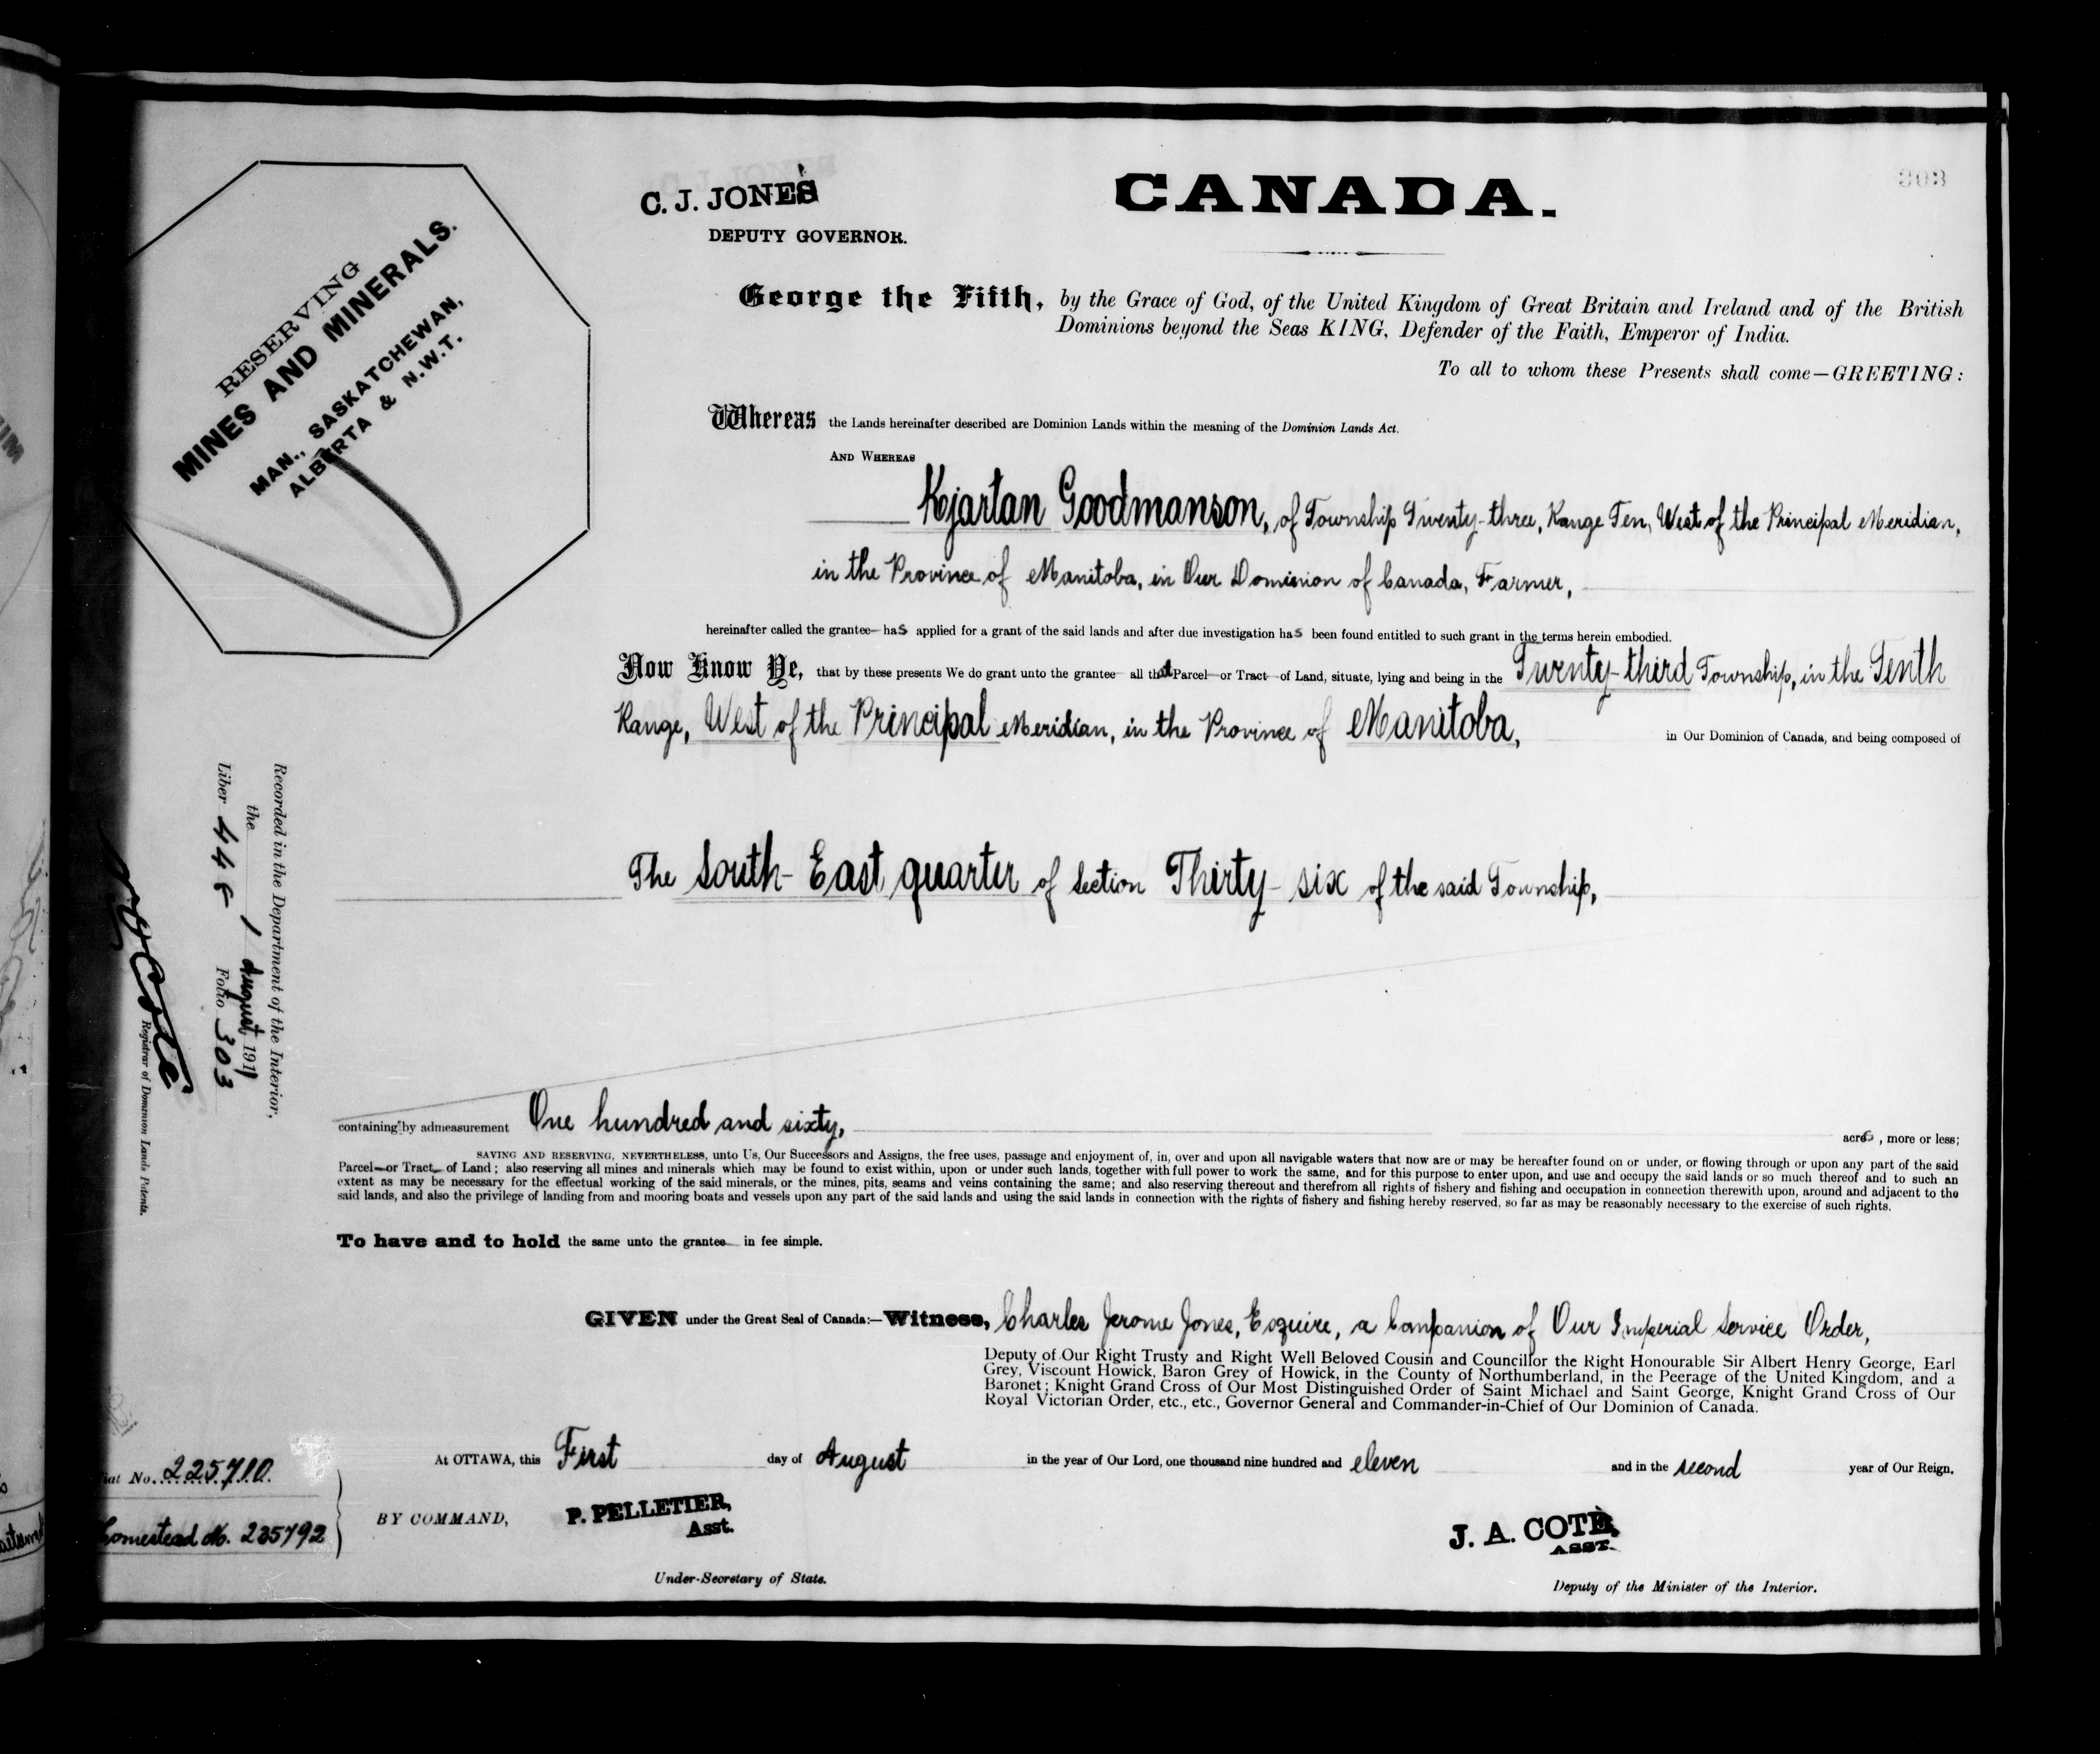 303
C. J. JONES
DEPUTY GOVERNOR.
CANADA.
RESERVING
MINES AND MINERALS.
MAN., SASKATCHEWAN,
ALBERTA & N.W.T.
George the Fifth, by the Grace of God, of the United Kingdom of Great Britain and Ireland and of the British
Dominions beyond the Seas KING, Defender of the Faith, Emperor of India.
To all to whom these Presents shall come—GREETING:
Whereas the Lands hereinafter described are Dominion Lands within the meaning of the Dominion Lands Act.
AND WHEREAS
Kjartan Goodmanson, of Township Twenty-three, Range Ten, West of the Principal Meridian,
in the Province of Manitoba, in Our Dominion of Canada, Farmer,
hereinafter called the grantee— has applied for a grant of the said lands and after due investigation has been found entitled to such grant in the terms herein embodied.
Now Know Ye, that by these presents We do grant unto the grantee— all that Parcel— or Tract— of Land, situate, lying and being in the Twenty-third Township, in the Tenth
Range, West of the Principal Meridian, in the Province of Manitoba, in Our Dominion of Canada, and being composed of
The South-East quarter of Section Thirty-six of the said Township,
containing by admeasurement One hundred and sixty, acres, more or less;
SAVING AND RESERVING, NEVERTHELESS, unto Us, Our Successors and Assigns, the free uses, passage and enjoyment of, in, over and upon all navigable waters that now are or may be hereafter found on or under, or flowing through or upon any part of the said
Parcel— or Tract— of Land; also reserving all mines and minerals which may be found to exist within, upon or under such lands, together with full power to work the same, and for this purpose to enter upon, and use and occupy the said lands or so much thereof and to such an
extent as may be necessary for the effectual working of the said minerals, or the mines, pits, seams and veins containing the same; and also reserving thereout and therefrom all rights of fishery and fishing and occupation in connection therewith upon, around and adjacent to the
said lands, and also the privilege of landing from and mooring boats and vessels upon any part of the said lands and using the said lands in connection with the rights of fishery and fishing hereby reserved, so far as may be reasonably necessary to the exercise of such rights.
To have and to hold the same unto the grantee— in fee simple.
GIVEN under the Great Seal of Canada:—Witness, Charles Jerome Jones, Esquire, a Companion of Our Imperial Service Order,
Deputy of Our Right Trusty and Right Well Beloved Cousin and Councillor the Right Honourable Sir Albert Henry George, Earl
Grey, Viscount Howick, Baron Grey of Howick, in the County of Northumberland, in the Peerage of the United Kingdom, and a
Baronet; Knight Grand Cross of Our Most Distinguished Order of Saint Michael and Saint George, Knight Grand Cross of Our
Royal Victorian Order, etc., etc., Governor General and Commander-in-Chief of Our Dominion of Canada.
At OTTAWA, this First day of August in the year of Our Lord, one thousand nine hundred and eleven and in the second year of Our Reign.
BY COMMAND,
P. PELLETIER,
Asst.
Under-Secretary of State.
J. A. COTÈ,
ASST.
Deputy of the Minister of the Interior.
Recorded in the Department of the Interior,
the 1 August 1911
Liber 448 Folio 303
Registrar of Dominion Lands Patents.
iat No. 225710.
Homestead No. 235792